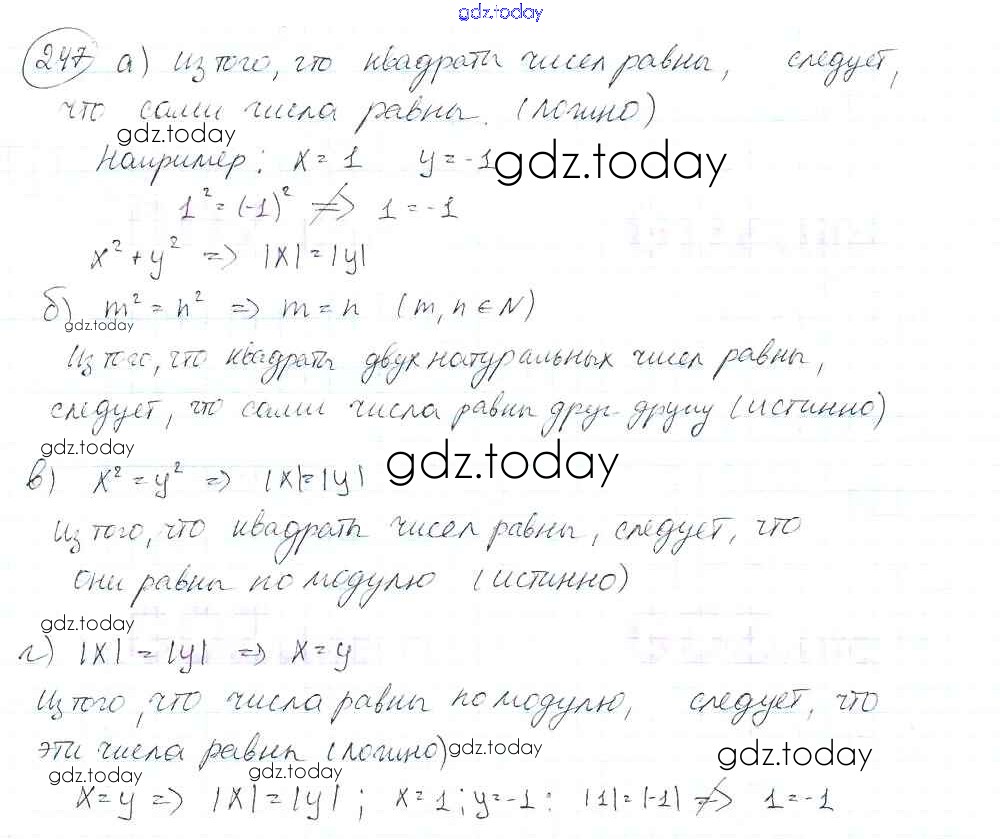 gdz.today
247 а) Из того, что квадраты чисел равны, следует,
что сами числа равны. (Ложно)
gdz.today
Например: x = 1 y = -1 gdz.today
1² = (-1)² ≠> 1 = -1
x² + y² => |x| = |y|
б) m² = n² => m = n (m, n ∈ N)
gdz.today
Из того, что квадраты двух натуральных чисел равны,
следует, что сами числа равны друг-другу (истинно)
gdz.today gdz.today
в) x² = y² => |x| = |y|
Из того, что квадраты чисел равны, следует, что
они равны по модулю (истинно)
gdz.today
г) |x| = |y| => x = y
Из того, что числа равны по модулю, следует, что
эти числа равны (ложно) gdz.today gdz.today
gdz.today gdz.today
x = y => |x| = |y|; x = 1; y = -1: |1| = |-1| ≠> 1 = -1